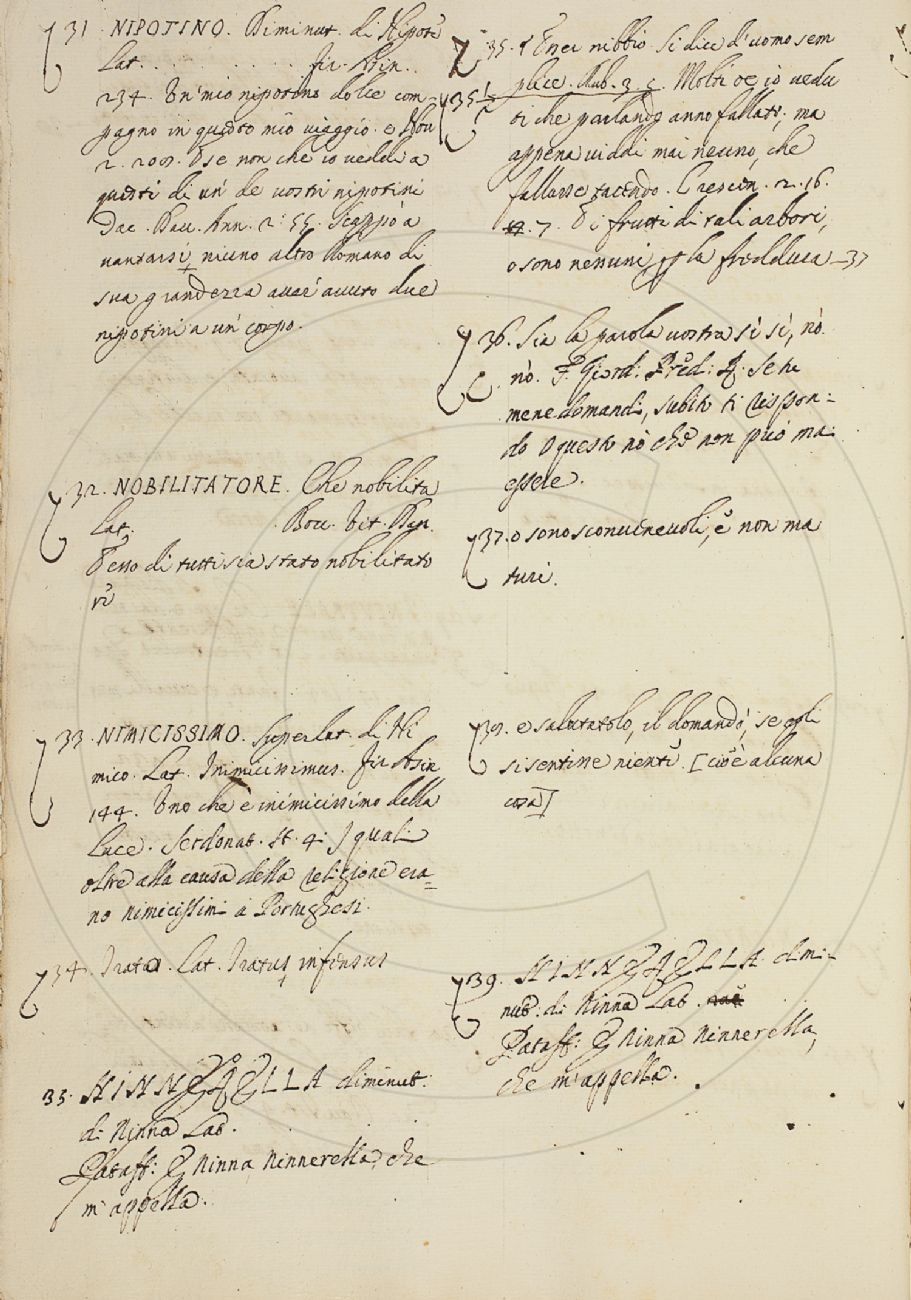 31. NIPOTINO. Diminut. di Nipote
Lat. . . . . . . . . . . fir. Asin.
234. Un' mio nipotino dolce com-
pagno in questo mio viaggio. e Nov
2. 209. Se non che io veddi a
questi di un' de vostri nipotini
Dav. Ann. 2. 55. Scappò a
vantarsi, niuno altro Romano di
sua grandezza aver' avuto due
nipotini a un' corpo.
32. NOBILITATORE. Che nobilita
Lat. Bocc. Vit. Dan.
esso di tutti sia stato nobilitato
re
33. NIMICISSIMO. Superlat. di Ni
mico. Lat. Inimicissimus. fir Asin
144. Uno che è inimicissimo della
Luce. Serdonat. st. 4. I quali
oltre alla causa della religione era=
no nimicissimi a Portughesi.
34. Irato. Lat. Iratus, infensus
35. NINNERELLA diminut.
di Ninna Lat.
Pataff: E Ninna Ninnerella, che
m' appella.
35. nibbio si dice d' uomo sem
plice. 
35 1/2 Molti ò io vedu
ti che parlando anno fallato, ma
appena viddi mai neuno, che
fallasse tacendo. Crescen. 2. 16.
7. E i frutti di tali arbori,
o sono nessuni per la freddura - 37
36. Sia la parola vostra sì sì, nò
nò. F. Giord: Pred: R. Se tu
mene domandi, subito ti rispon=
do o questo nò che non può ma
essere.
37. o sono sconvenevoli, e non ma
turi.
39. e salutatolo, il domandò, se egli
si sentisse niente. [cioè alcuna
cosa]
39. NINNERELLA dimi-
nut. di Ninna Lat.
Pataff: E Ninna Ninnerella,
che m' appella.